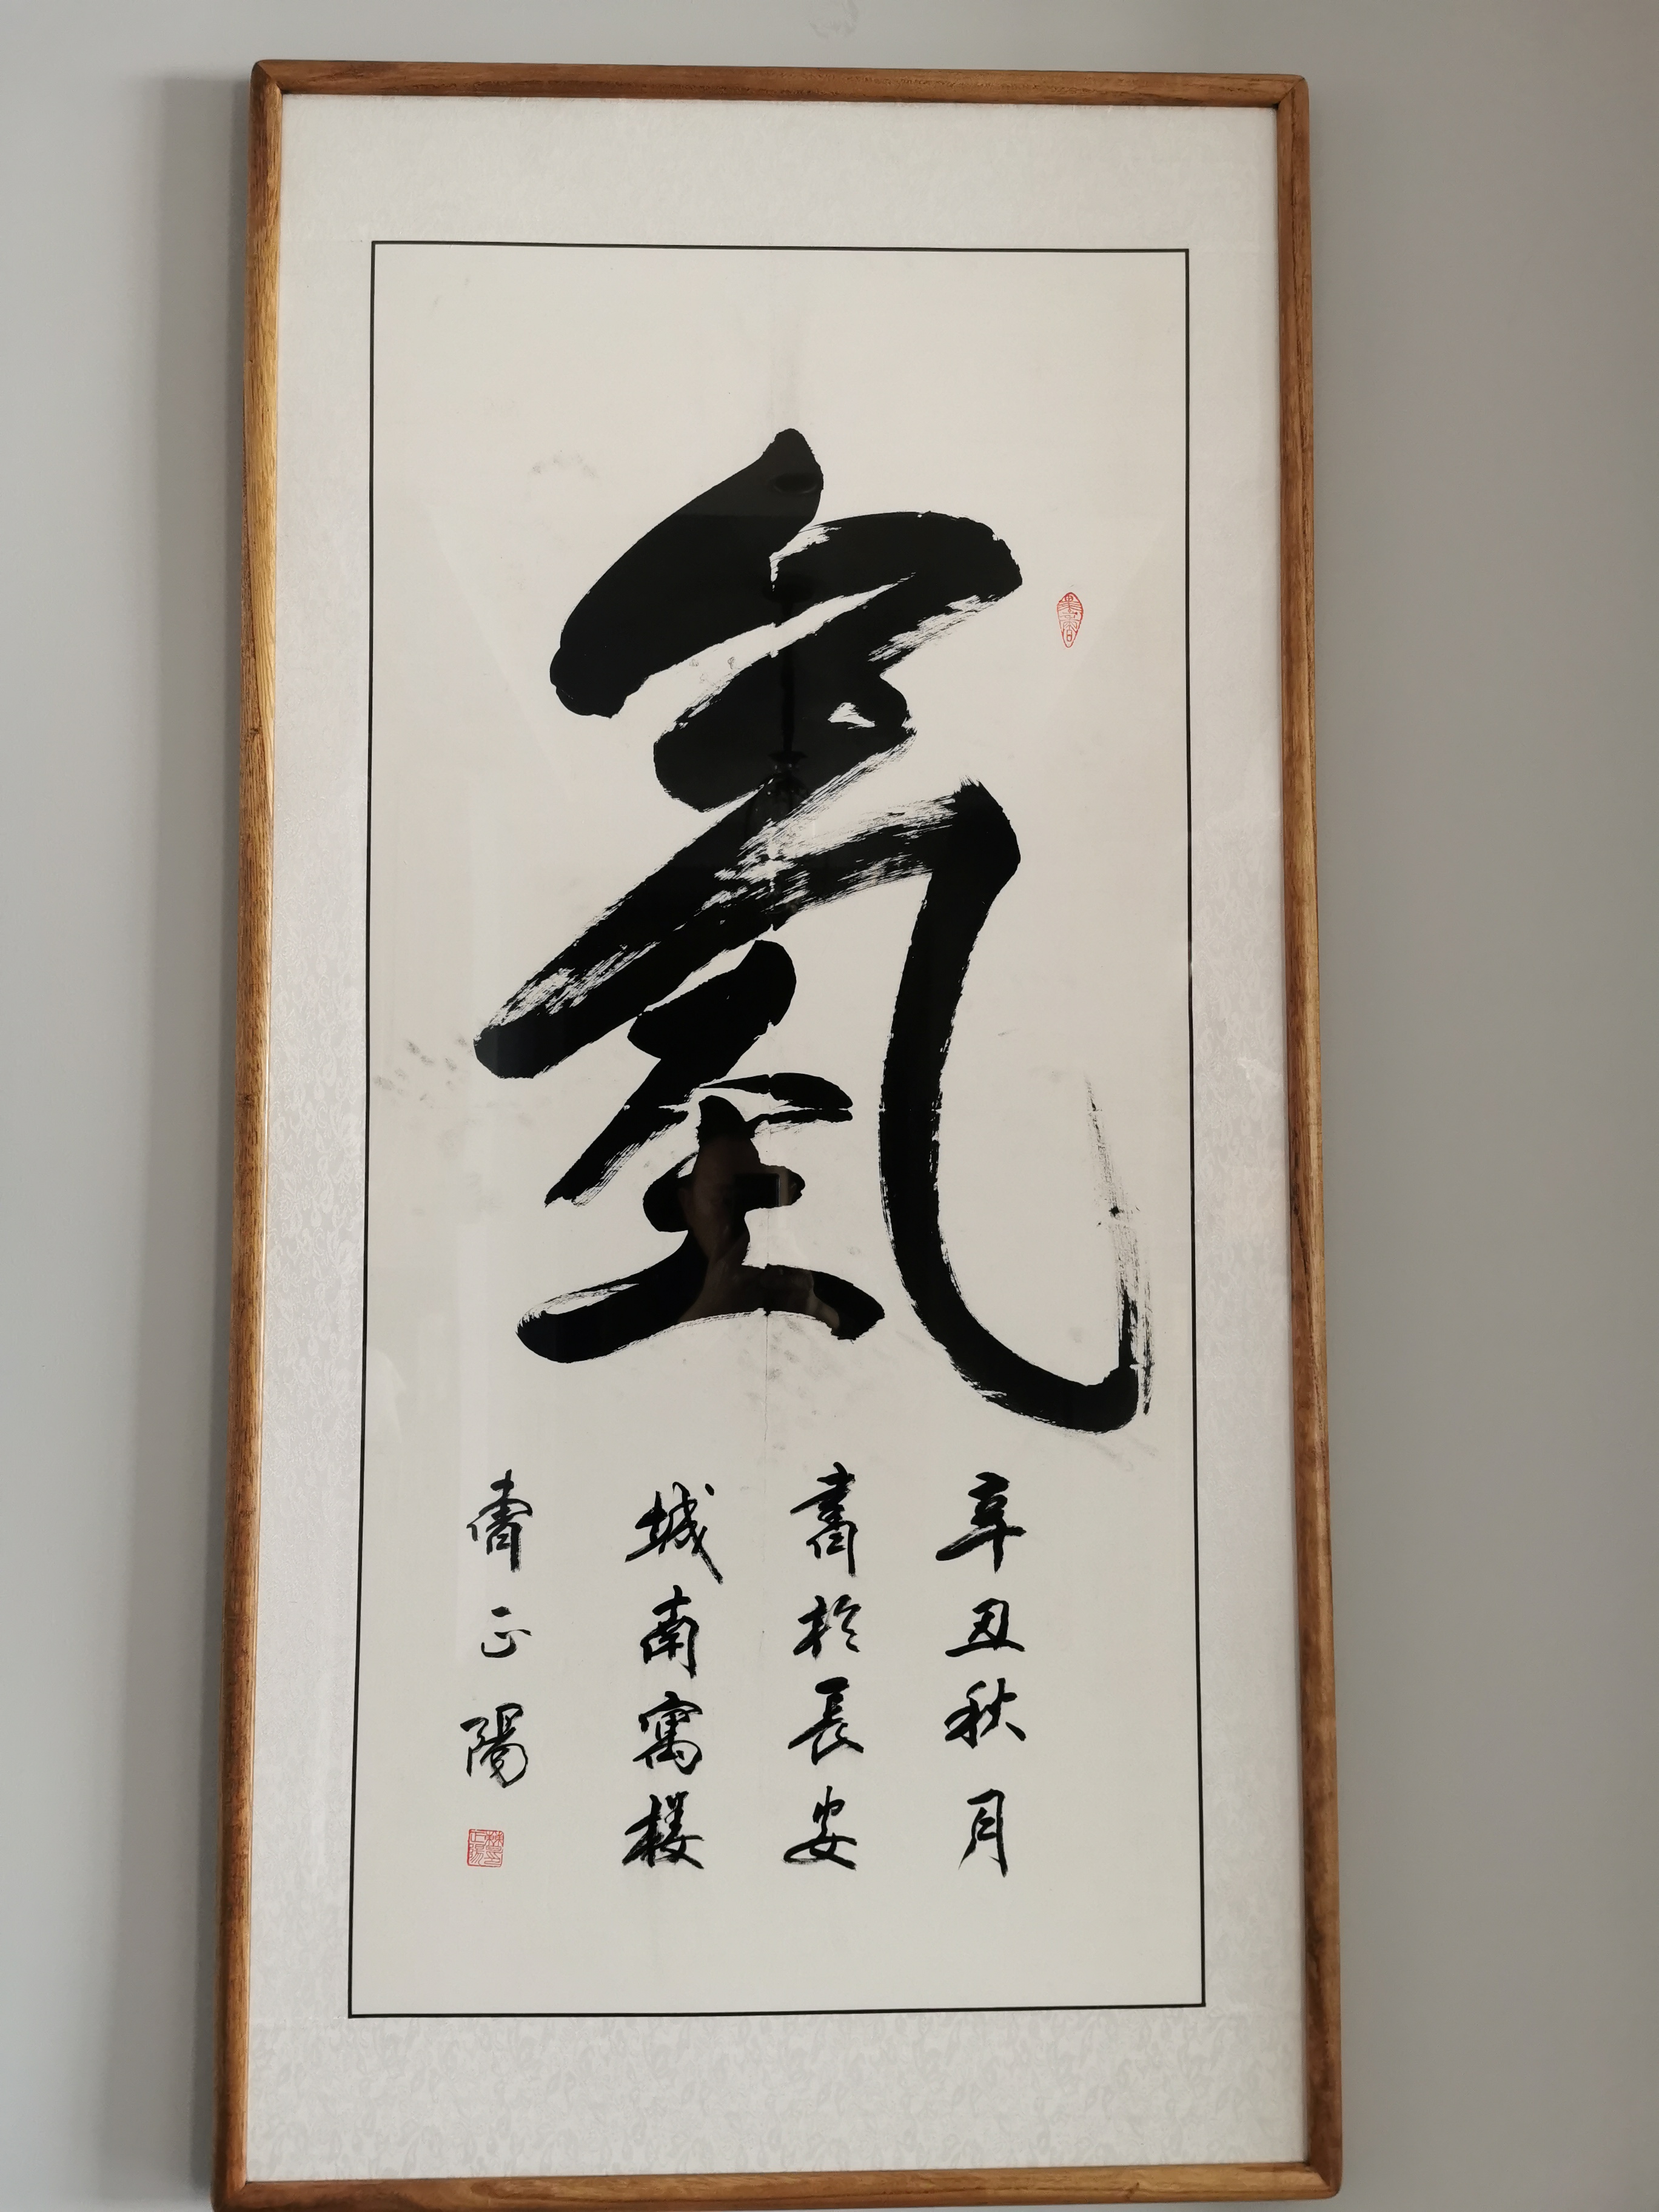 氣
辛丑秋月
書於長安
城南寓樓
正陽